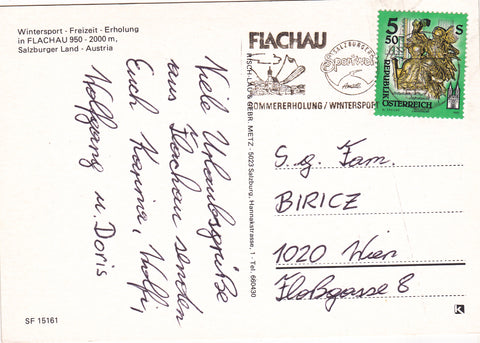 Wintersport · Freizeit · Erholung
in FLACHAU 950 - 2000 m,
Salzburger Land - Austria
Viele Urlaubsgrüße
aus Flachau senden
Euch Karina, Wolfi,
Wolfgang u. Doris
SF 15161
FLACHAU
SALZBURGER
Sportwelt
Amadé
SOMMERERHOLUNG / WINTERSPORT
5 50 S
REPUBLIK
ÖSTERREICH
METZ - 5023 Salzburg, Hannakstrasse, 1 - Tel. 660430
S.g. Fam.
BIRICZ
1020 Wien
Floßgasse 8
K